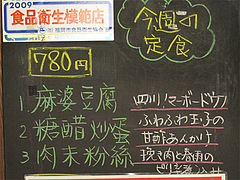 2009
食品衛生模範店
今週の
定食
780円
1. 麻婆豆腐
2 糖醋炒蛋
3 肉末粉絲
四川!マーボードウフ
ふわふわ玉子の
甘酢あんかけ
挽き肉と春雨の
ピリ辛煮込み